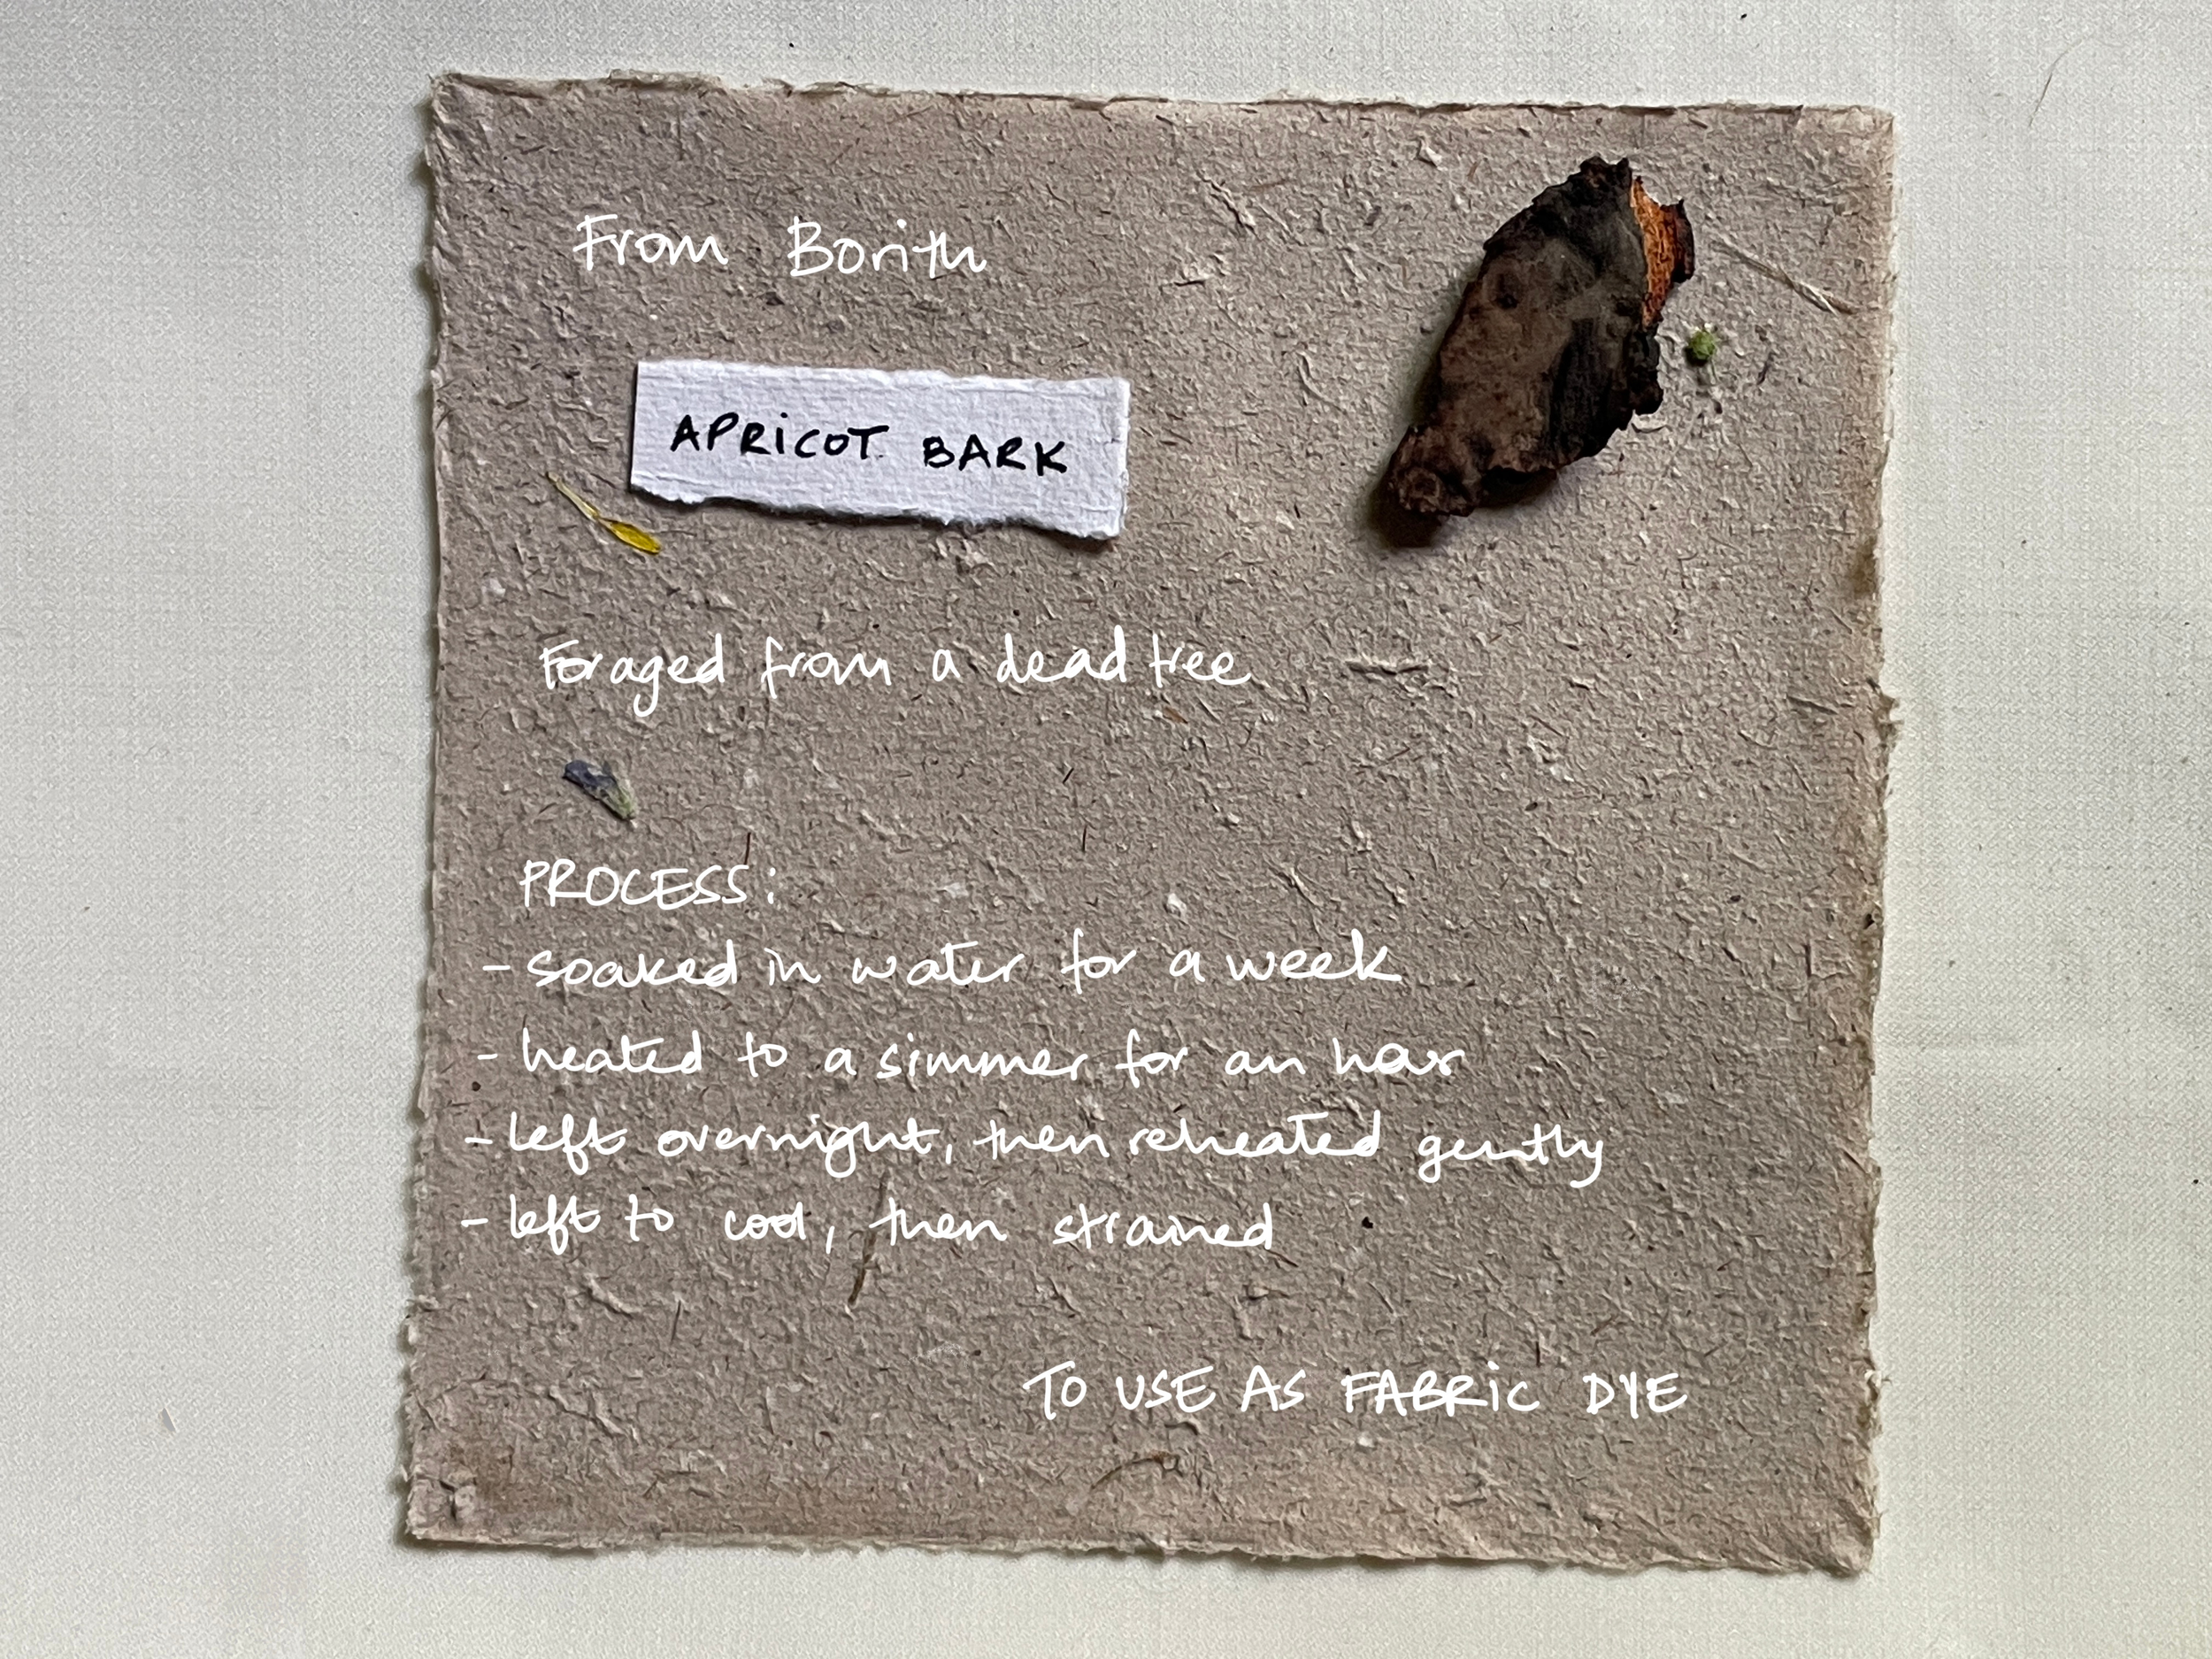 From Borith
APRiCOT BARK
Foraged from a dead tree
PROCESS:
- soaked in water for a week
- heated to a simmer for an hour
- left overnight, then reheated gently
- left to cool, then strained
TO USE AS FABRiC DYE